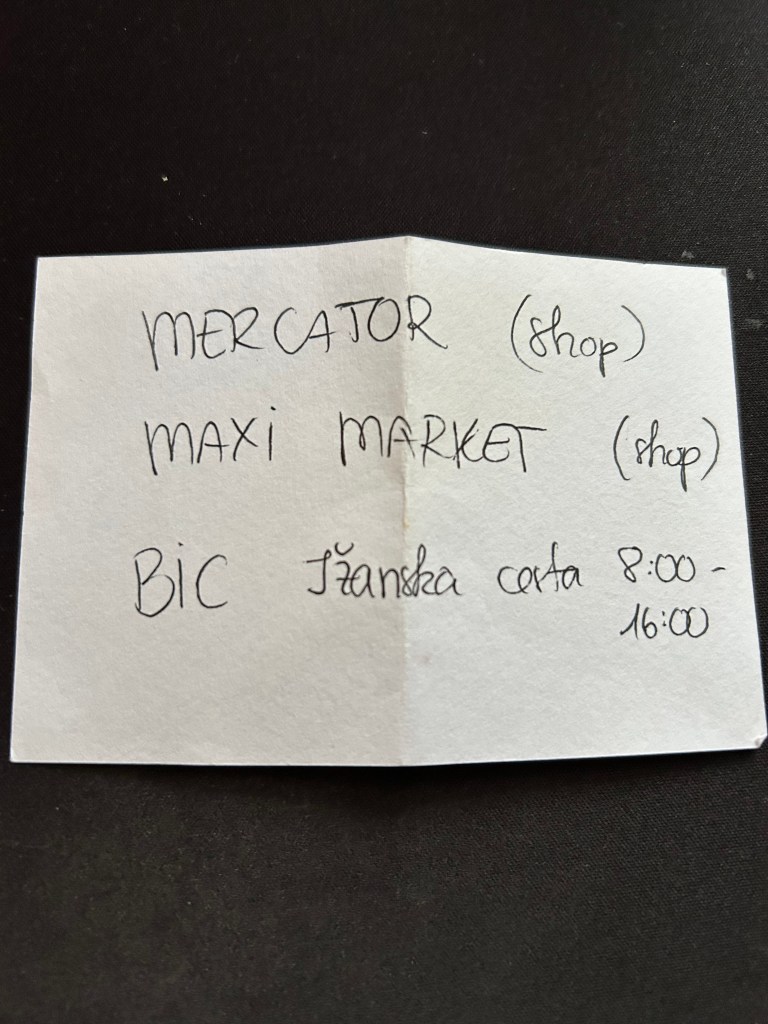 MERCATOR (shop)
MAXI MARKET (shop)
BIC Ižanska cesta 8:00 -
16:00